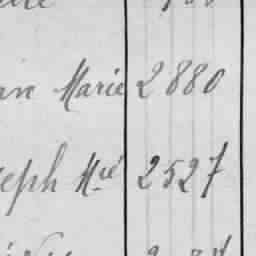 an Marie 2880
seph Mié 2527